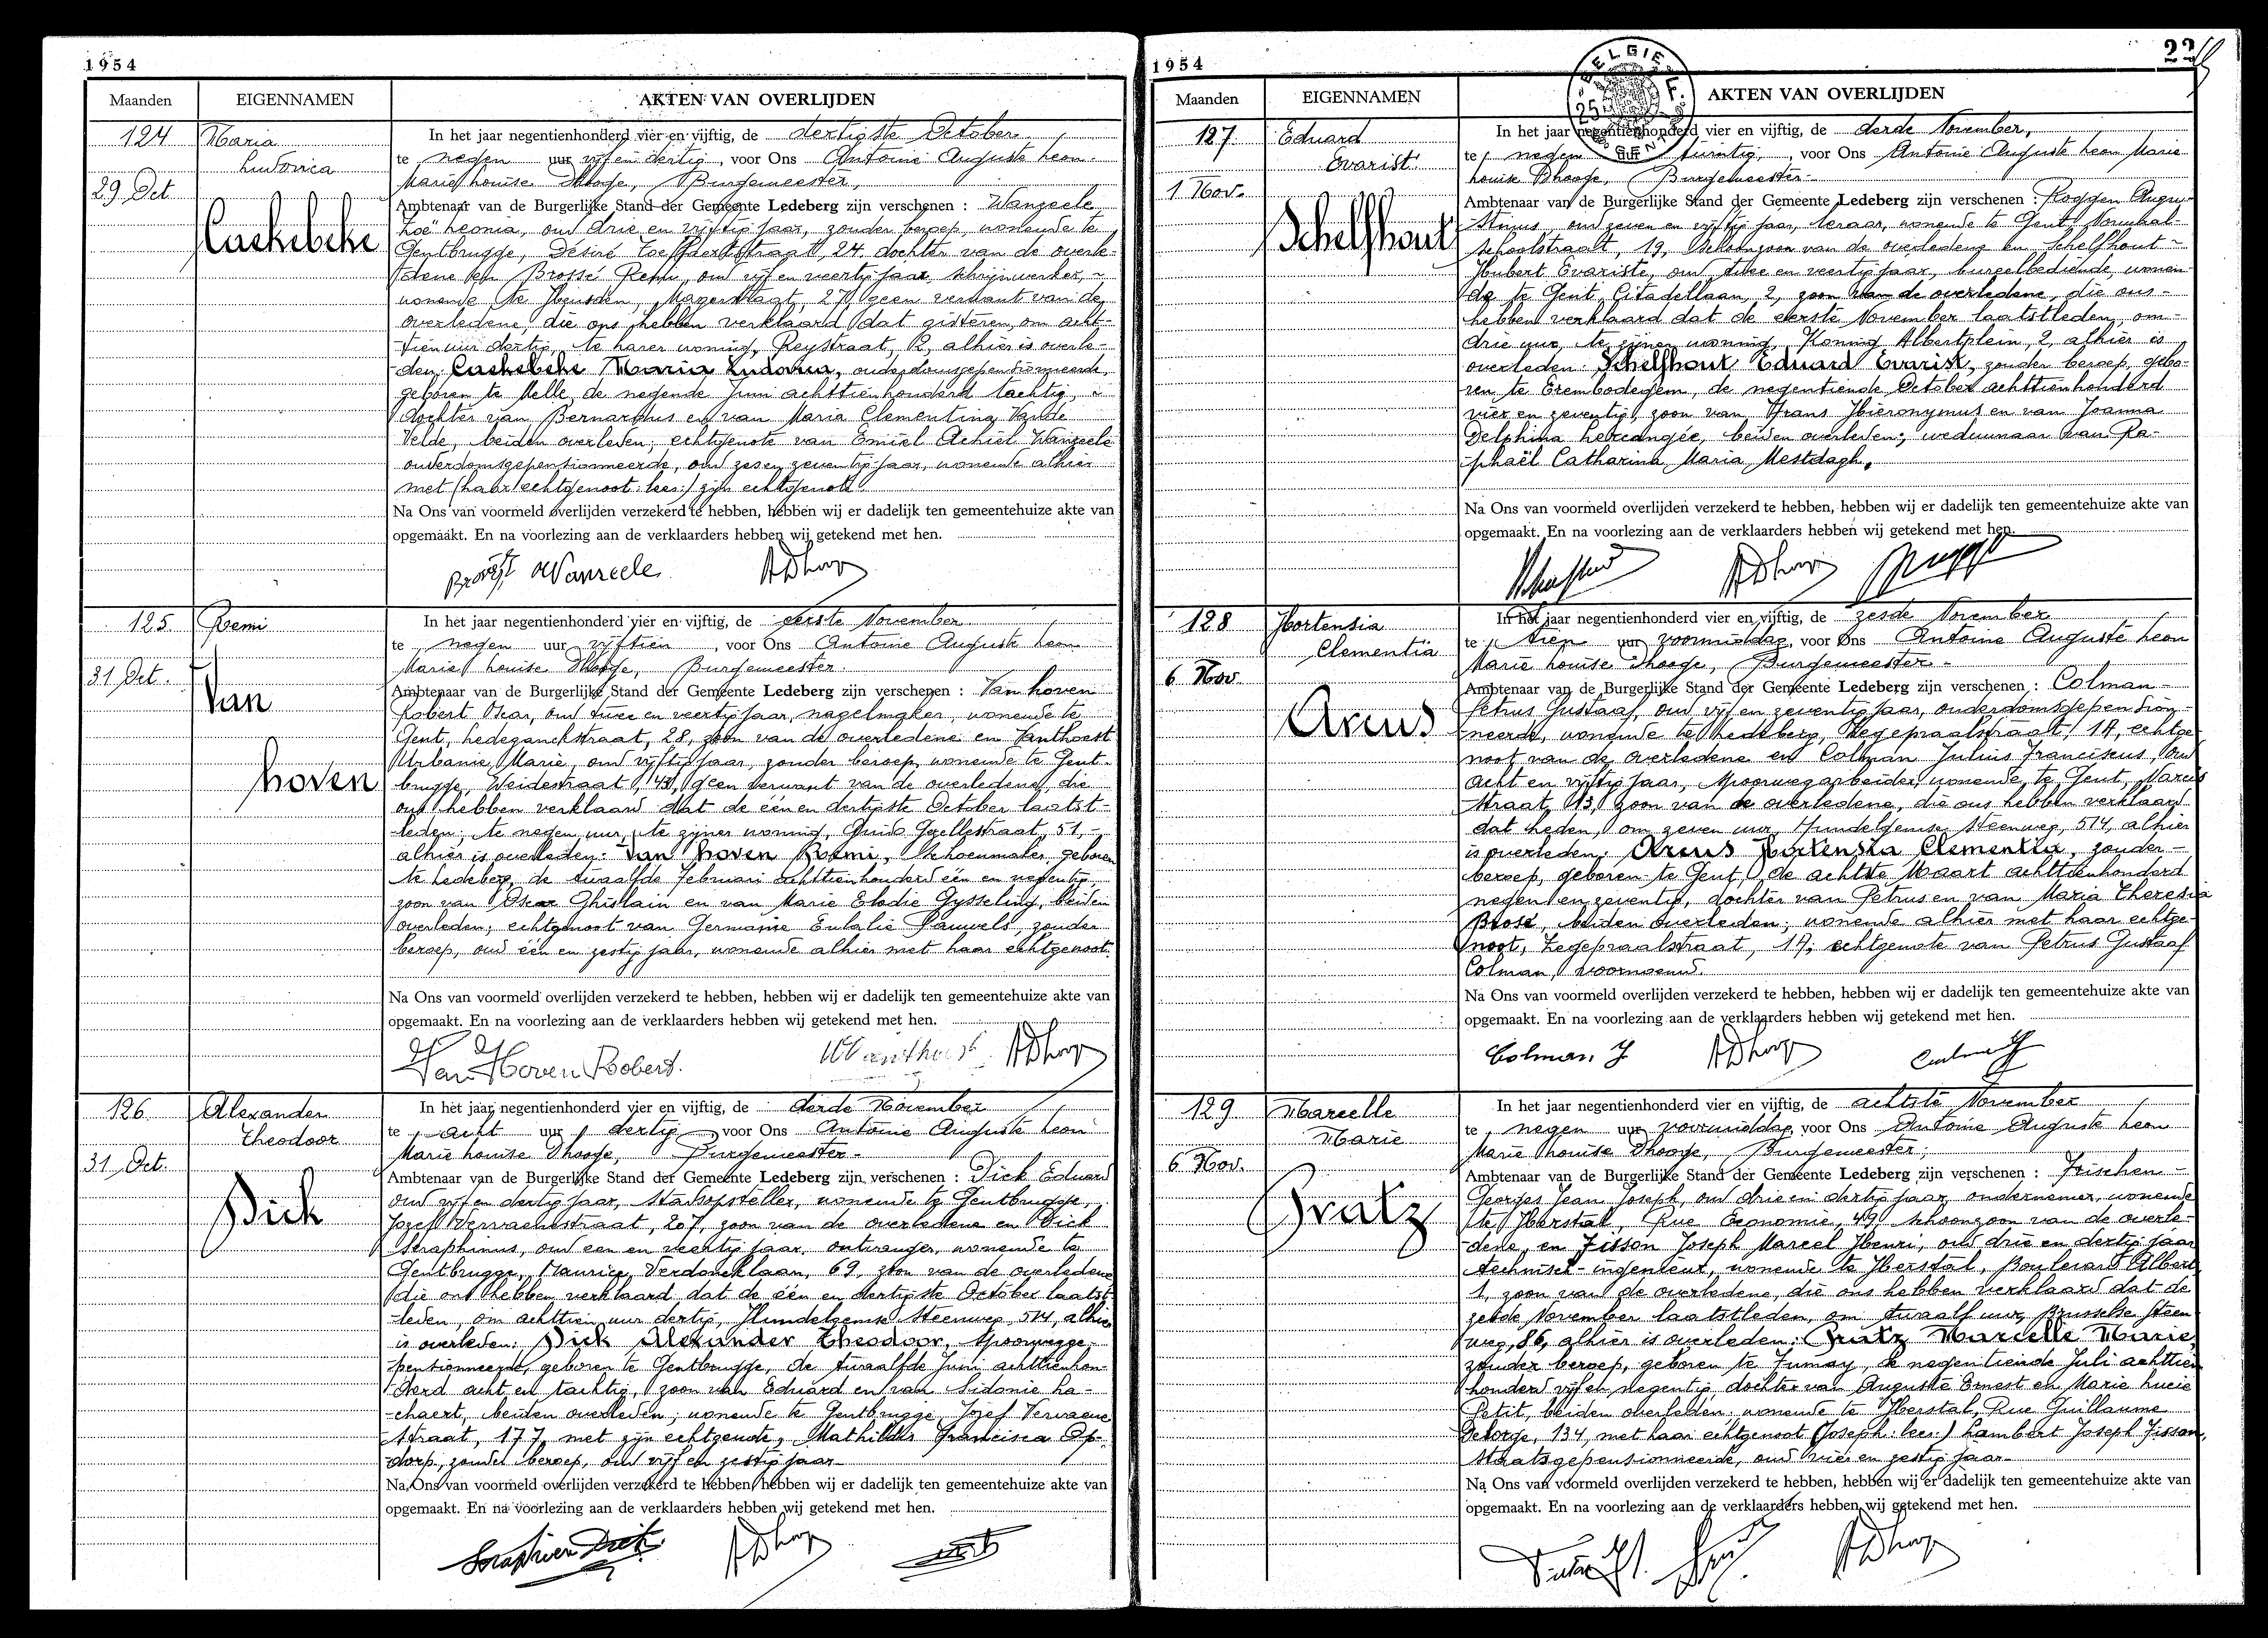 1954
Maanden EIGENNAMEN AKTEN VAN OVERLIJDEN
124 Maria
Ludovica
29 Oct.
Caekebeke
In het jaar negentienhonderd vier en vijftig, de dertigste October
te negen uur vijf en dertig, voor Ons Antoine Auguste Leon
Marie Louise Dhooge, Burgemeester,
Ambtenaar van de Burgerlijke Stand der Gemeente Ledeberg zijn verschenen : Wanzeele
Zoë Leonia, oud drie en vijftig jaar, zonder beroep, wonende te
Gentbrugge, Désiré straat, 24, dochter van de overle-
dene en Remi, oud vijf en veertig jaar, schrijnwerker, -
wonende te Heusden, 27, geen verwant van de
overledene, die ons hebben verklaard dat gisteren, om acht-
tien uur dertig, te harer woning, Reystraat, 12, alhier is overle-
den: Caekebeke Maria Ludovica, ouderdomsgepensionneerde,
geboren te Melle, de negende Juni achttienhonderd tachtig, -
dochter van Bernardus en van Maria Clementina Vande
Velde, beiden overleden; echtgenote van Emiel Achiel Wanzeele
ouderdomsgepensionneerde, oud zes en zeventig jaar, wonende alhier
met (haar echtgenoot: lees:) zijn echtgenote.
Na Ons van voormeld overlijden verzekerd te hebben, hebben wij er dadelijk ten gemeentehuize akte van
opgemaakt. En na voorlezing aan de verklaarders hebben wij getekend met hen.
Wanzeele ADhooge
125 Remi
31 Oct.
Van
hoven
In het jaar negentienhonderd vier en vijftig, de eerste November
te negen uur vijftien, voor Ons Antoine Auguste Leon
Marie Louise Dhooge, Burgemeester.
Ambtenaar van de Burgerlijke Stand der Gemeente Ledeberg zijn verschenen : Van hoven
Robert Oscar, oud twee en veertig jaar, nagelmaker, wonende te
Gent, Ledeganckstraat, 28, zoon van de overledene en Vanthorst
Urbanie Marie, oud vijftig jaar, zonder beroep, wonende te Gent-
brugge, Weidestraat, 43, geen verwant van de overledene, die
ons hebben verklaard dat de één en dertigste October laatst-
leden, te negen uur, te zijner woning, Guido Gezellestraat, 51, -
alhier is overleden: Van hoven Remi, schoenmaker, geboren
te Ledeberg, de twaalfde Februari achttienhonderd één en negentig,
zoon van Oscar Ghislain en van Marie Elodie Gysseling, beiden
overleden; echtgenoot van Germaine Eulalie Pauwels, zonder
beroep, oud één en zestig jaar, wonende alhier met haar echtgenoot.
Na Ons van voormeld overlijden verzekerd te hebben, hebben wij er dadelijk ten gemeentehuize akte van
opgemaakt. En na voorlezing aan de verklaarders hebben wij getekend met hen.
Van Hoven Robert. ADhooge
126 Alexander
Theodoor
31 Oct.
Dick
In het jaar negentienhonderd vier en vijftig, de derde November
te acht uur dertig, voor Ons Antoine Auguste Leon
Marie Louise Dhooge, Burgemeester -
Ambtenaar van de Burgerlijke Stand der Gemeente Ledeberg zijn verschenen : Dick Eduard
oud vijf en dertig jaar, stadsopsteller, wonende te Gentbrugge,
Jozef Vervaenestraat, 207, zoon van de overledene en Dick
Seraphinus, oud een en veertig jaar, ontvanger, wonende te
Gentbrugge, Maurice Verdoncklaan, 69, zoon van de overledene
die ons hebben verklaard dat de één en dertigste October laatst-
leden, om achttien uur dertig, Hundelgemse Steenweg, 514, alhier
is overleden: Dick Alexander Theodoor, spoorwegge-
pensionneerde, geboren te Gentbrugge, de twaalfde Juni achttienhon-
derd acht en tachtig, zoon van Eduard en van Sidonie La-
chaert, beiden overleden; wonende te Gentbrugge, Jozef Vervaene
straat, 177, met zijn echtgenote, Mathildis Francisca Op-
dorp, zonder beroep, oud vijf en zestig jaar.
Na Ons van voormeld overlijden verzekerd te hebben, hebben wij er dadelijk ten gemeentehuize akte van
opgemaakt. En na voorlezing aan de verklaarders hebben wij getekend met hen.
Seraphien Dick ADhooge
1954
22
BELGIE
GENT
Maanden EIGENNAMEN AKTEN VAN OVERLIJDEN
127 Eduard
Evarist
1 Nov.
Schelfhout
In het jaar negentienhonderd vier en vijftig, de derde November,
te negen uur twintig, voor Ons Antoine Auguste Leon Marie
Louise Dhooge, Burgemeester.
Ambtenaar van de Burgerlijke Stand der Gemeente Ledeberg zijn verschenen : Roggen Augu-
stinus, oud zeven en vijftig jaar, leraar, wonende te Gent, Normaal-
schoolstraat, 19, schoonzoon van de overledene en Schelfhout -
Hubert Evariste, oud twee en veertig jaar, bureelbediende, wonen-
de te Gent, Citadellaan, 2, zoon van de overledene, die ons -
hebben verklaard dat de eerste November laatstleden, om -
drie uur, te zijner woning, Koning Albertplein, 2, alhier is
overleden: Schelfhout Eduard Evarist, zonder beroep, gebo-
ren te Erembodegem, de negentiende October achttienhonderd
vier en zeventig, zoon van Frans Hieronymus en van Joanna
Delphina, beiden overleden; weduwnaar van Ra-
phaël Catharina Maria Mestdagh.
Na Ons van voormeld overlijden verzekerd te hebben, hebben wij er dadelijk ten gemeentehuize akte van
opgemaakt. En na voorlezing aan de verklaarders hebben wij getekend met hen.
ADhooge
128 Hortensia
Clementia
6 Nov
Arcus
In het jaar negentienhonderd vier en vijftig, de zesde November
te tien uur voormiddag, voor Ons Antoine Auguste Leon
Marie Louise Dhooge, Burgemeester -
Ambtenaar van de Burgerlijke Stand der Gemeente Ledeberg zijn verschenen : Colman -
Petrus Gustaaf, oud vijf en zeventig jaar, ouderdomsgepension-
neerde, wonende te Ledeberg, Zegepraalstraat, 17, echtge-
noot van de overledene en Colman Julius Franciscus, oud
acht en vijftig jaar, spoorwegarbeider, wonende te Gent, Narcis
straat, 13, zoon van de overledene, die ons hebben verklaard
dat heden, om zeven uur, Hundelgemse Steenweg, 514, alhier
is overleden: Arcus Hortensia Clementia, zonder -
beroep, geboren te Gent, de achtste Maart achttienhonderd
negen en zeventig, dochter van Petrus en van Maria Theresia
Brose, beiden overleden; wonende alhier met haar echtge-
noot, Zegepraalstraat, 17; echtgenote van Petrus Gustaaf
Colman, voornoemd.
Na Ons van voormeld overlijden verzekerd te hebben, hebben wij er dadelijk ten gemeentehuize akte van
opgemaakt. En na voorlezing aan de verklaarders hebben wij getekend met hen.
Colman J ADhooge
129 Marcelle
Marie
6 Nov.
Gratz
In het jaar negentienhonderd vier en vijftig, de achtste November
te negen uur voormiddag, voor Ons Antoine Auguste Leon
Marie Louise Dhooge, Burgemeester;
Ambtenaar van de Burgerlijke Stand der Gemeente Ledeberg zijn verschenen : Frischen -
Georges Jean Joseph, oud drie en dertig jaar, ondernemer, wonende
te Herstal, Rue Economie, 49, schoonzoon van de overle-
dene, en Fisson Joseph Marcel Henri, oud drie en dertig jaar
technisch-ingenieur, wonende te Herstal, Boulevard Albert
1, zoon van de overledene, die ons hebben verklaard dat de
zesde November laatstleden, om twaalf uur, Brusselse Steen
weg, 86, alhier is overleden: Gratz Marcelle Marie,
zonder beroep, geboren te Fumay, de negentiende Juli achttien
honderd vijf en negentig, dochter van Auguste Ernest en Marie Lucie
Petit, beiden overleden; wonende te Herstal, Rue Guillaume
Delorge, 134, met haar echtgenoot (Joseph: lees:) Lambert Joseph Fisson,
Staatsgepensionneerde, oud vier en zestig jaar.
Na Ons van voormeld overlijden verzekerd te hebben, hebben wij er dadelijk ten gemeentehuize akte van
opgemaakt. En na voorlezing aan de verklaarders hebben wij getekend met hen.
ADhooge